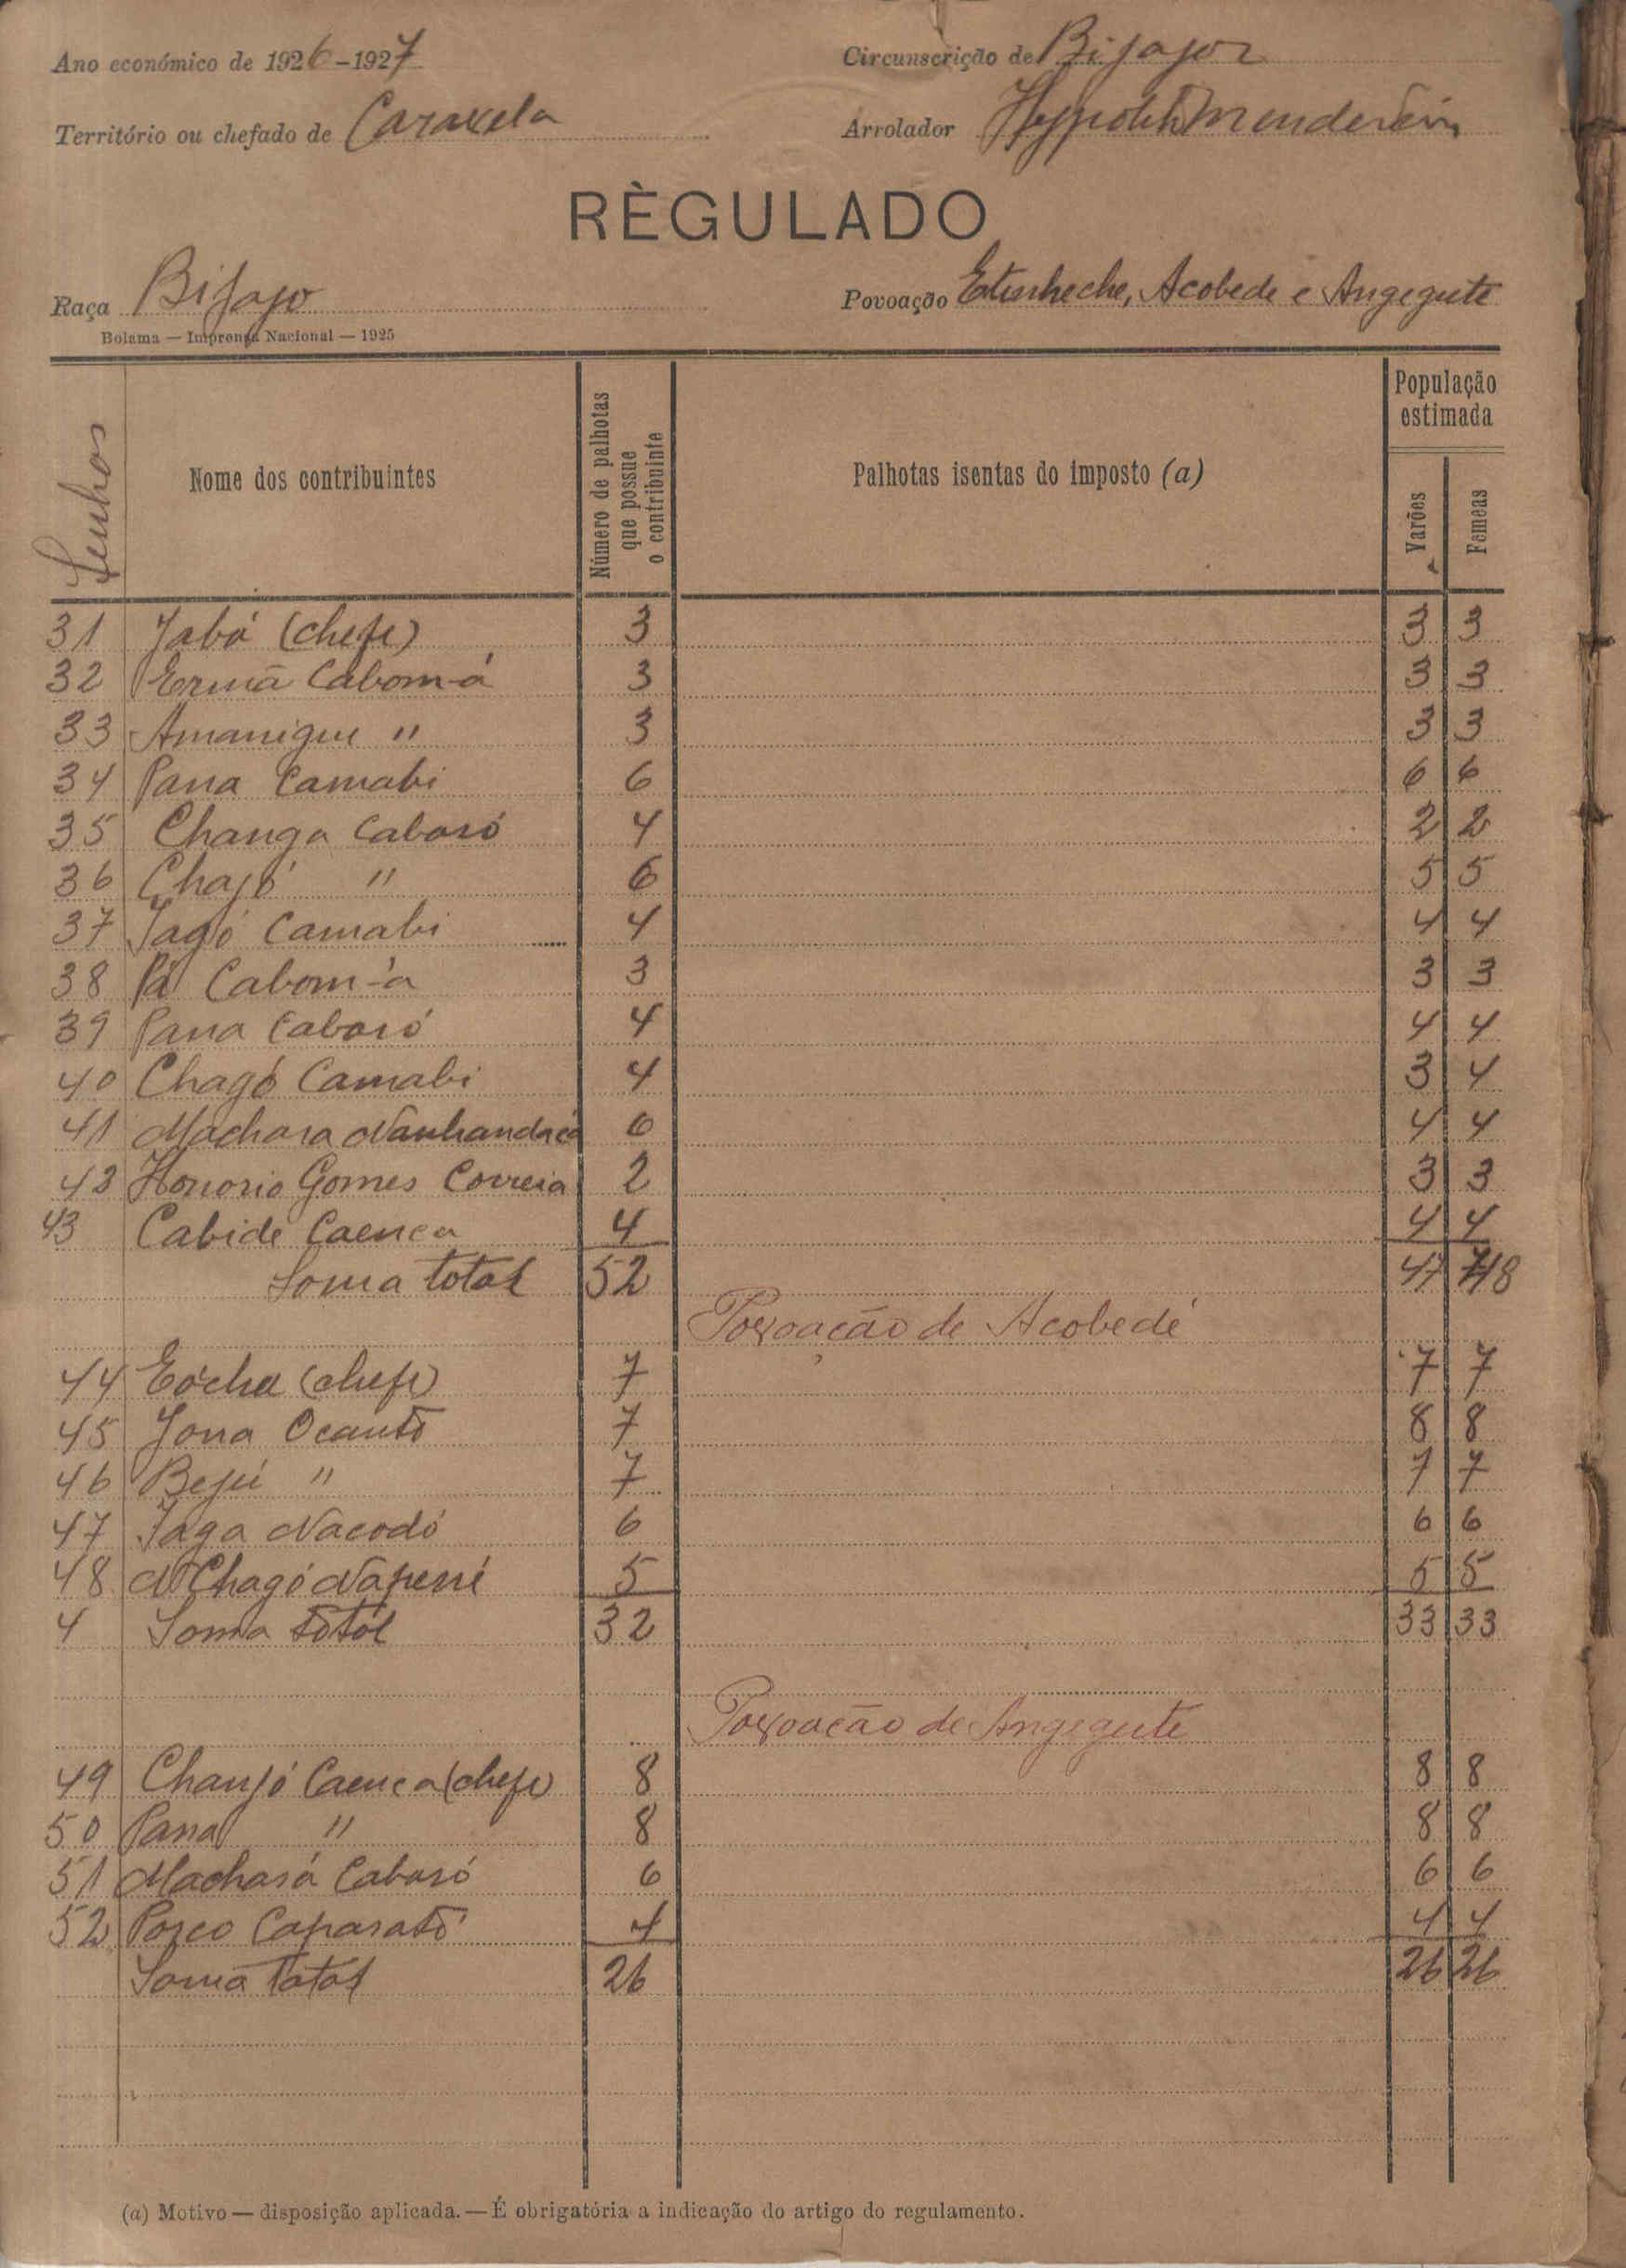 Ano económico de 1926-1927 Circunscrição de Bijagoz
Território ou chefado de Caraxela Arrolador
RÈGULADO
Raça Bijago Povoação Etinheche, Acobede e Angegute
Bolama — Imprensa Nacional — 1925
Senhas Nome dos contribuintes Número de palhotas que possue o contribuinte Palhotas isentas do imposto (a) População estimada Varões Femeas
31 Jabá (chefe) 3 3 3
32 Ermã Cabom-á 3 3 3
33 Amanigue " 3 3 3
34 Pana Camabi 6 6 6
35 Changa Cabosó 4 2 2
36 Chajó " 6 5 5
37 Jagó Camabi 4 4 4
38 Pá Cabom-á 3 3 3
39 Pana Cabosó 4 4 4
40 Chagó Camabi 4 3 4
41 Machora 6 4 4
42 Honorio Gomes Correia 2 3 3
43 Cabide Caenca 4 4 4
Soma total 52 47 48
Povoação de Acobedé
44 Eócha (chefe) 7 7 7
45 Jona Ocantó 7 8 8
46 Bejú " 7 7 7
47 Jaga Nacodó 6 6 6
48 N'Chagó 5 5 5
4 Soma total 32 33 33
Povoação de Angegute
49 Chanjó Caenca (chefe) 8 8 8
50 Pana " 8 8 8
51 Machasá Cabosó 6 6 6
52 Posco Caparató 4 4 4
Soma Total 26 26 26
(a) Motivo — disposição aplicada. — É obrigatória a indicação do artigo do regulamento.